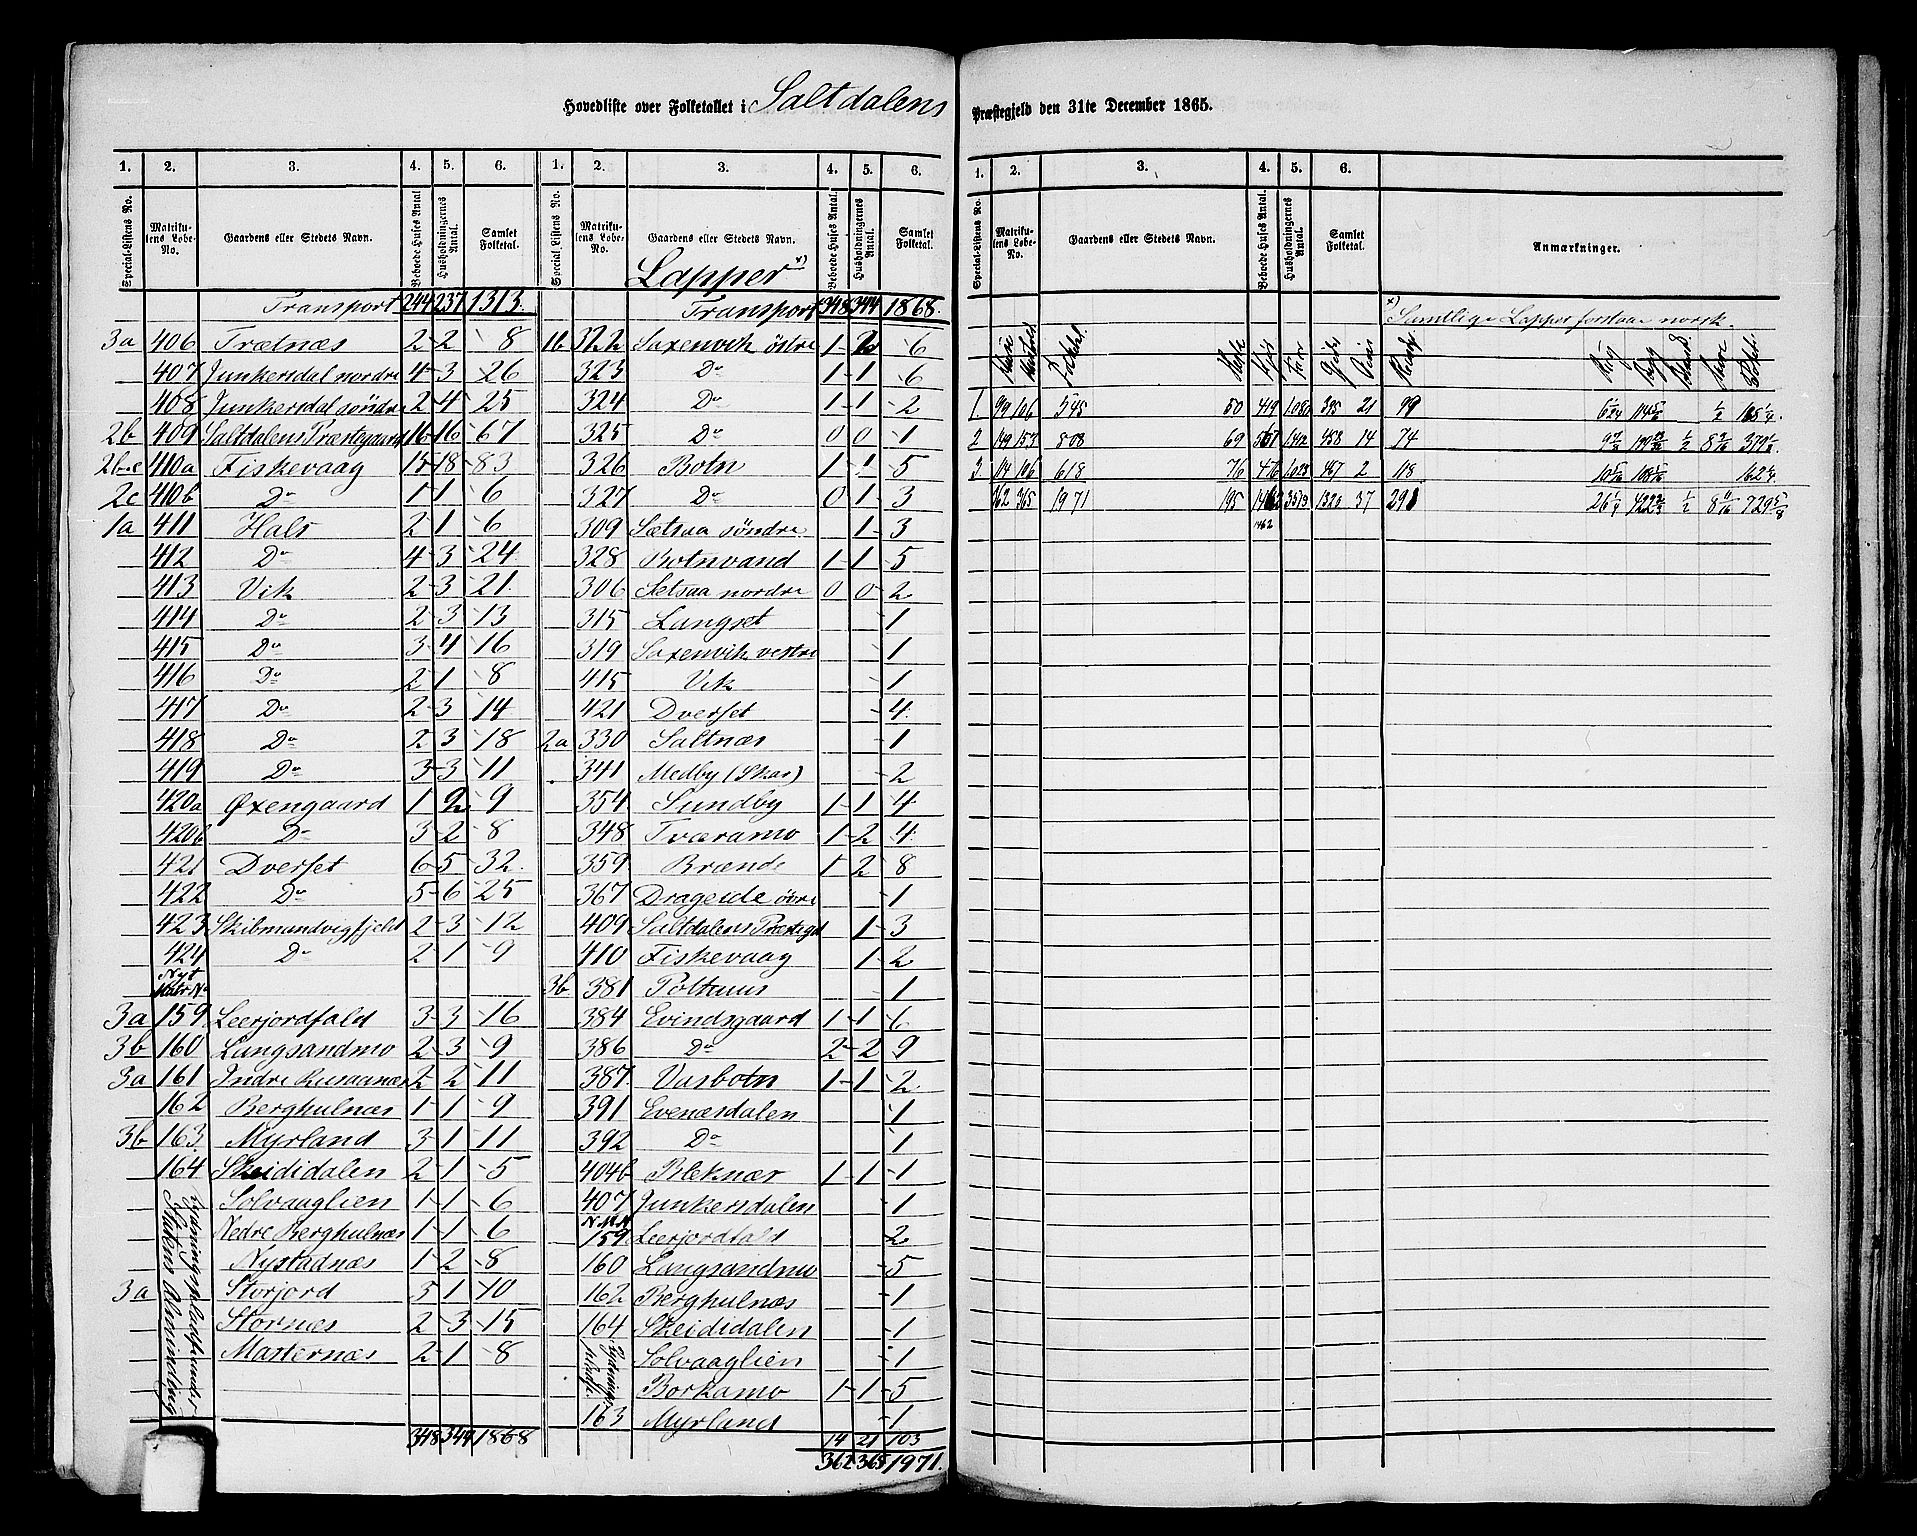 Hovedliste over Folketallet i Saltdalens Præstegjeld den 31te December 1865.
1. 2. 3. 4. 5. 6. 1. 2. 3. 4. 5. 6.
Special-Listens No. Matrikulens Løbe-No. Gaardens eller Stedets Navn. Beboede Huses Antal Husholdningernes Antal. Samlet Folketal.
Special Listens No. Matrikulens Løbe-No. Gaardens eller Stedets Navn. Beboede Huses Antal. Husholdningernes Antal. Samlet Folketal.
Transport 244 237 1313.
3a 406 Trætnæs 2 2 8
407 Junkersdal nordre 4 3 26
408 Junkersdal søndre 2 4 25
2b 409 Saltdalens Præstegaard 16 16 67
2b-c 410a Fiskevaag 15 18 83
2c 410b Do 1 1 6
1a 411 Hals 2 1 6
412 Do 4 3 24
413 Vik 2 3 21
414 Do 2 3 13
415 Do 3 4 16
416 Do 2 1 8
417 Do 2 3 14
418 Do 2 3 18
419 Do 3 3 11
420a Øxengaard 1 2 9
420b Do 3 2 8
421 Dverset 6 5 32
422 Do 5 6 25
423 Skibmundvigfjeld 2 3 12
424 Do 2 1 9
Nyt Matr No
3a 159 Leerjordfald 3 3 16
3b 160 Langsandmo 2 3 9
3a 161 Indre Rusaanæs 2 2 11
162 Berghulnæs 1 1 9
3b 163 Myrland 3 1 11
164 Skeididalen 2 1 5
Rydningspladse under Statens Almindning
Solvaaglien 1 1 6
Nedre Berghulnæs 1 1 6
Nystadnæs 1 2 8
3a Storjord 3 1 10
Stornæs 2 3 15
Masternæs 2 1 8
348 344 1868
Lapper x)
Transport 348 344 1868.
1b 322 Saxenvik østre 1 2 6
323 Do 1 1 6
324 Do 1 1 2
325 Do 0 0 1
326 Botn 1 1 5
327 Do 0 1 3
309 Sætsaa søndre 1 3
328 Botnvand 1 1 5
306 Setsaa nordre 0 0 2
315 Langset 1
319 Saxenvik vestre 1
415 Vik 1
421 Dverset 4
2a 330 Saltnæs 1
341 Medby (Skar) 2
354 Sundby 1 1 4
348 Tværamo 1 2 4
359 Brænde 1 2 8
367 Drageide øvre 1
409 Saltdalens Præstegd 1 3
410 Fiskevaag 1 2
3b 381 Potthuus 1
384 Evindsgaard 1 1 6
386 Do 2 2 9
387 Vasbotn 1 1 2
391 Evenæsdalen 1
392 Do 1
404b Bleknær 1 1 1
407 Junkersdalen 1
N.M.N. 159 Leerjordfald 2
160 Langsandmo 5
162 Berghulnæs 1
164 Skeididalen 1
Solvaaglien 1
Borkamo 1 1 5
163 Myrland 1
14 21 103
362 365 1971.
1. 2. 3. 4. 5. 6.
Special-Listens No. Matrikulens Løbe-No. Gaardens eller Stedets Navn. Beboede Huses Antal. Husholdningernes Antal. Samlet Folketal. Anmærkninger.
x) Samtlige Lapper forstaar norsk.
1 99 106 545 50 419 1080 395 21 99
2 149 153 808 69 567 1402 458 14 74
3 114 106 618 76 476 1028 467 2 118
362 365 1971 195 1462 3513 1320 37 291
1462